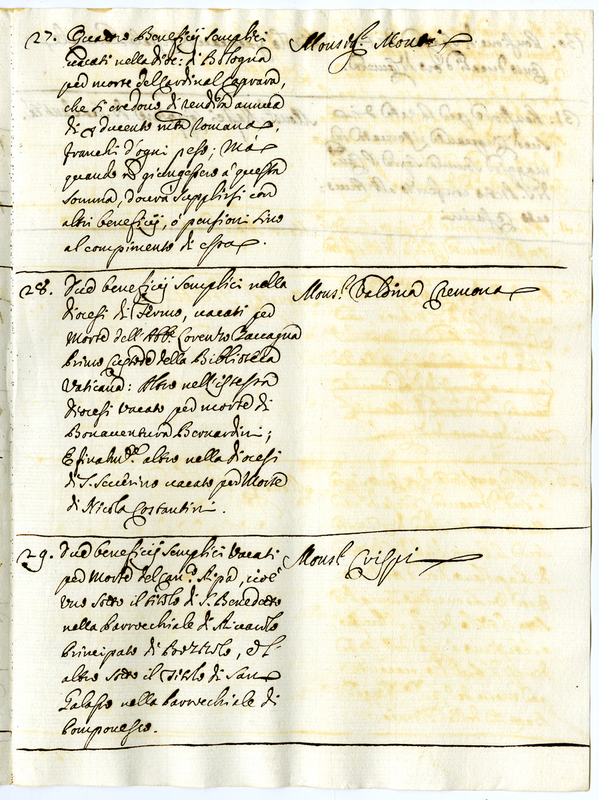 27. Quattro Beneficij semplici
vacati nella dioc: di Bologna
per morte del Cardinal Caprara,
che si credono di rendita annua
di ducento romana,
franchi d'ogni peso; Ma
quando nō giungessero à questa
somma, dovrà supplirsi con
altri beneficij, ò pensioni sino
al compimento di essa.
Monsig.r Monti
28. Due beneficij semplici nella
diocesi di Fermo, vacati per
Morte dell'Abb.e Lorenzo Zaccagna
primo della Biblioteca
Vaticana: Altro nell'istessa
diocesi vacato per morte di
Bonaventura Bernardini;
E finalm.te altro nella diocesi
di S. Severino vacato per Morte
di Nicola Costantini.
Mons.r Valdina Cremona
29. Due beneficij semplici Vacati
per Morte del Can.o Ripa, cioè
uno sotto il titolo di S. Benedetto
nella parrocchiale di
principato di Bozzolo, e l'
altro sotto il titolo di San
Galasso nella parrocchiale di
Pomponesco.
Mons.r Crispi